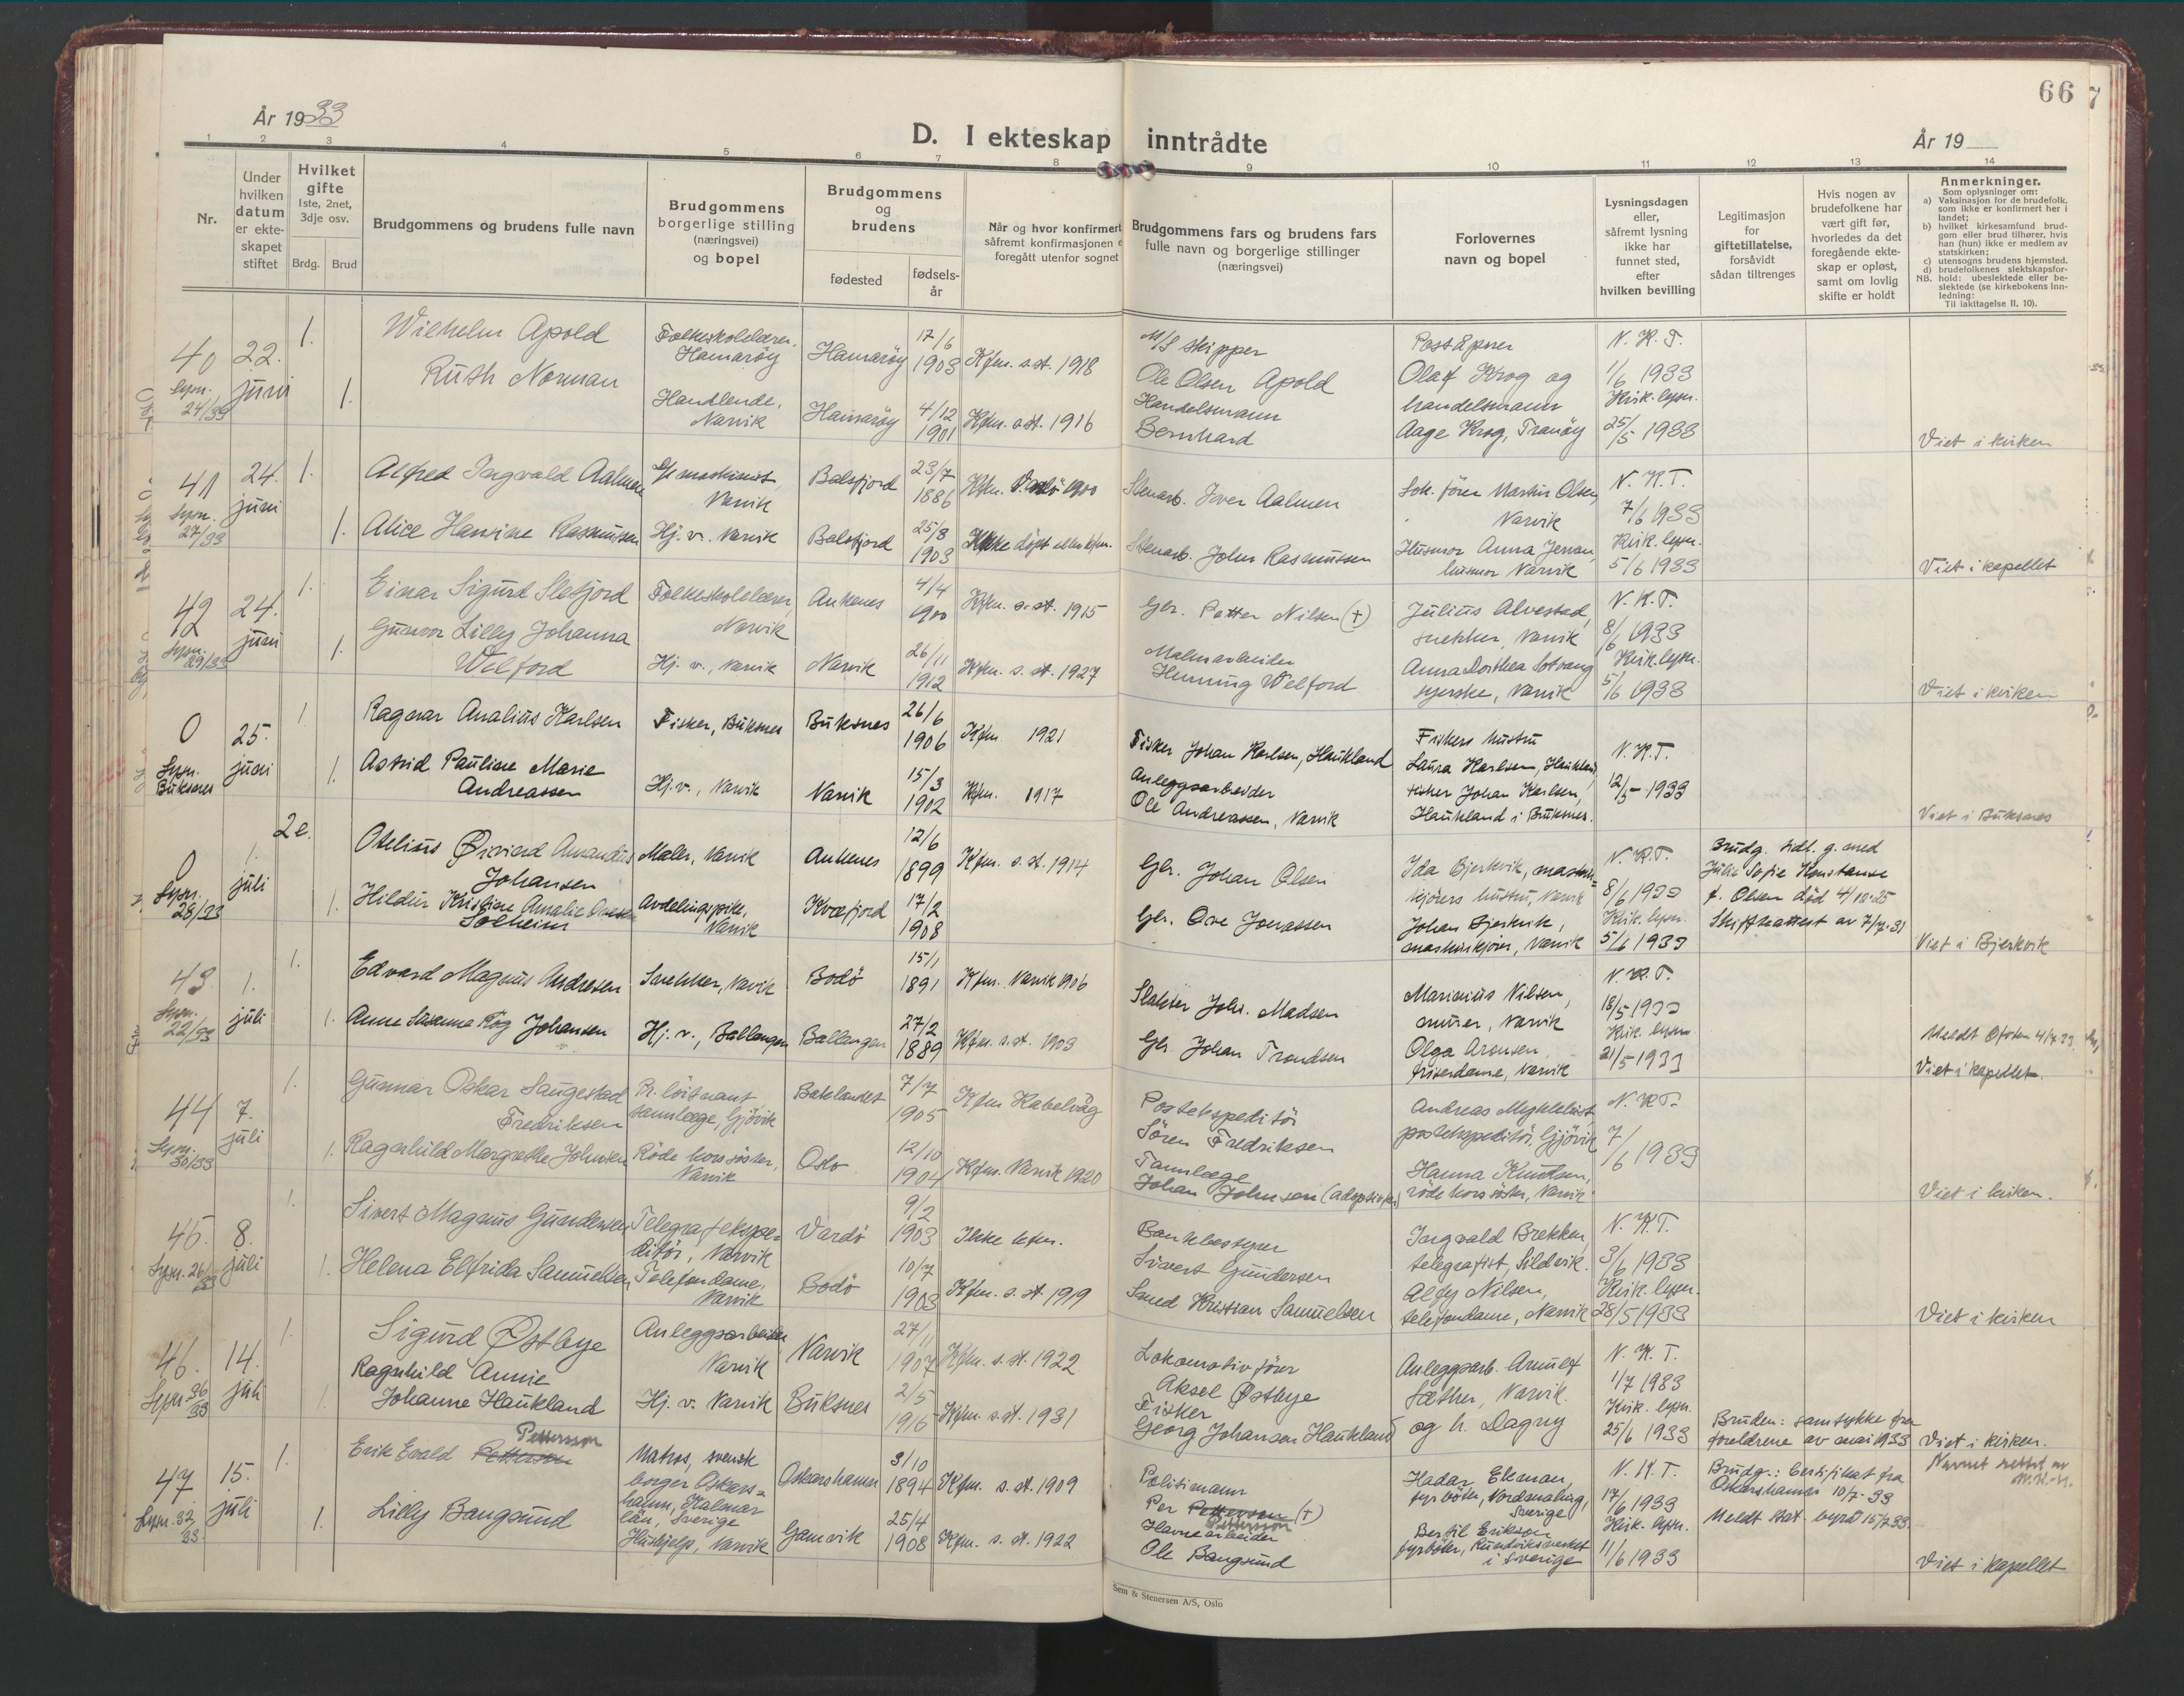 66
År 1933
D. I ekteskap inntrådte
År 19
1 2 3 4 5 6 7 8 9 10 11 12 13 14
Nr.
Under hvilken datum er ekteskapet stiftet
Hvilket gifte
1ste, 2net, 3dje osv.
Brdg. Brud
Brudgommens og brudens fulle navn
Brudgommens borgerlige stilling (næringsvei) og bopel
Brudgommens og brudens
fødested
fødsels-år
Når og hvor konfirmert
såfremt konfirmasjonen e
foregått utenfor sognet
Brudgommens fars og brudens fars
fulle navn og borgerlige stillinger
(næringsvei)
Forlovernes
navn og bopel
Lysningsdagen
eller,
såfremt lysning
ikke har
funnet sted,
efter
hvilken bevilling
Legitimasjon
for
giftetillatelse,
forsåvidt
sådan tiltrenges
Hvis nogen av
brudefolkene har
vært gift før,
hvorledes da det
foregående ekte-
skap er opløst,
samt om lovlig
skifte er holdt
Anmerkninger.
Som oplysninger om:
a) Vaksinasjon for de brudefolk,
som ikke er konfirmert her i
landet;
b) hvilket kirkesamfund brud-
gom eller brud tilhører, hvis
han (hun) ikke er medlem av
statskirken;
c) utensogns brudens hjemsted.
d) brudefolkenes slektskapsfor-
NB. hold: ubeslektede eller be-
slektede (se kirkebokens inn-
ledning:
Til iakttagelse II, 10).
40
22. juni
Lysn. 24/33
1.
Wilhelm Apold
Folkeskolelærer, Hamarøy
Hamarøy
17/6 1903
Kfm. s. st. 1918
M/S skipper
Ole Olsen Apold
Poståpner
Olaf Krog og
handelsmann
Aage Krog, Tranøy
N. K. T.
1/6 1933
Kirk. lysn.
25/5 1933
1.
Ruth Norman
Handlende, Narvik
Hamarøy
4/12 1901
Kfm. s. st. 1916
Handelsmann
Bernhard
Viet i kirken
41
24. juni
Lysn. 27/33
1.
Alfred Ingvald Aalmen
maskinist, Narvik
Balsfjord
23/7 1886
Kfm. Vardö 1900
Stenarb. Iver Aalmen
Lok. fører Martin Olsen, Narvik
N. K. T.
7/6 1933
1.
Alice Hansine Rasmussen
Hj. v. Narvik
Balsfjord
25/8 1903
Ikke döpt eller kfm.
Stenarb. John Rasmussen
Husmor Anna Jensen,
husmor Narvik
Kirk. lysn.
5/6 1933
Viet i kapellet
42
24. juni
Lysn. 29/33
1.
Einar Sigurd Slefjord
Folkeskolelærer, Narvik
Ankenes
4/4 1900
Kfm. s. st. 1915
Gbr. Petter Nilsen (+)
Julius Alvestad,
snekker, Narvik
N. K. T.
8/6 1933
1.
Gunvor Lilly Johanna
Welford
Hj. v., Narvik
Narvik
26/11 1912
Kfm. s. st. 1927
Malmarbeider
Henning Welford
Anna Dorthea Sotvang
syerske, Narvik
Kirk. lysn.
5/6 1933
Viet i kirken
0
25. juni
Lysn. Buksnes
1.
Ragnar Analius Karlsen
Fisker, Buksnes
Buksnes
26/6 1906
Kfm 1921
Fisker Johan Karlsen, Haukland
Fiskers hustru
Laura Karlsen, Haukland
N. K. T.
12/5 1933
1.
Astrid Pauline Marie
Andreassen
Hj. v., Narvik
Narvik
15/3 1902
Kfm. 1917
Anleggsarbeider
Ole Andreassen, Narvik
fisker Johan Karlsen,
Haukland i Buksnes.
Viet i Buksnes
0
1. juli
Lysn. 28/33
2e.
Otelius Øivind Amandus
Johansen
Maler, Narvik
Ankenes
12/6 1899
Kfm. s. st. 1914
Gbr. Johan Olsen
Ida Bjerkvik, maskin-
kjörers hustru, Narvik
N. K. T.
8/6 1933
Brudg. tidl. g. med
Julie Sofie Konstanse
f. Olsen död 4/10-25
Skifteattest av 7/7-31
1.
Hildur Kristine Amalie Ovesen
Solheim
Avdelingspike, Narvik
Kvæfjord
17/2 1908
Gbr. Ove Jonassen
Johan Bjerkvik,
maskinkjører, Narvik
Kirk. lysn.
5/6 1933
Viet i Bjerkvik
43.
1. juli
Lysn. 22/33
1.
Edvard Magnus Andresen
Snekker, Narvik
Bodö
15/1 1891
Kfm. Narvik 1906
Slakter Joh. Madsen
Marinius Nilsen,
murer, Narvik
N. K. T.
18/5 1933
1.
Anne Susanne Røg Johansen
Hj. v., Ballangen
Ballangen
27/2 1889
Kfm. s. st. 1903
Gbr. Johan Trondsen
Olga Aronsen,
friserdame, Narvik
Kirk. lysn.
21/5 1933
Meldt Ofoten 4/7-33.
Viet i kapellet.
44
7. juli
Lysn. 30/33
1.
Gunnar Oskar Saugestad
Fredriksen
Pr. löitnant
tannlæge, Gjövik
Batslandet
7/7 1905
Kfm Kabelvåg
Postekspeditör
Sören Fredriksen
Andreas Myklebust,
postekspeditör, Gjövik
N. K. T.
7/6 1933
1.
Ragnhild Margrethe Johnsen
Röde kors söster, Narvik
Oslo
12/10 1904
Kfm. Narvik 1920
Tannlæge
Johan Johnsen (adoptivfar)
Hanna Knudtsen,
röde kors söster, Narvik
Viet i kirken.
45.
8. juli
Lysn. 26/33
1.
Sivert Magnus Gundersen
Telegrafekspe-
ditör, Narvik
Vardö
9/2 1903
Ikke kfm.
Bankbestyrer
Sivert Gundersen
Ingvald Brekken,
telegrafist, Sildvik.
N. K. T.
3/6 1933
1.
Helena Elfrida Samuelsen
Telefondame, Narvik
Bodö
10/7 1903
Kfm. s. st. 1919
Smed Kristian Samuelsen
Alfy Nilsen,
telefondame, Narvik
Kirk. lysn.
28/5 1933
Viet i kirken
46.
14. juli
Lysn. 36/33
1.
Sigurd Østbye
Anleggsarbeider
Narvik
Narvik
27/11 1907
Kfm. s. st. 1922
Lokomotivförer
Aksel Østbye
Anleggsarb. Arnulf
Sæther, Narvik.
N. K. T.
1/7 1933
1.
Ragnhild Annie
Johanne Haukland
Hj. v. Narvik
Buksnes
2/5 1915
Kfm. s. st. 1931
Fisker
Georg Johansen Haukland
og h. Dagny
Kirk. lysn.
25/6 1933
Bruden: samtykke fra
foreldrene av mai 1933
Viet i kirken.
47
15. juli
Lysn. 32/33.
1.
Pettersson
Erik Evald Petterson
Matros, svensk
borger Oskars-
hamn, Kalmar
län, Sverige
Oskarshamn
3/10 1894
Kfm. s. st. 1909
Politimann
Per Petterson (+)
Pettersson
Hadar Ekman,
fyrböter, Nordmaling,
Sverige
N. K. T.
17/6 1933
Brudg.: Certifikat fra
Oskarshamn 10/7-33
Meldt stat. byrå 15/7 33.
Navnet rettet av
1.
Lilly Bangsund
Hushjelp, Narvik
Gamvik
25/4 1908
Kfm. s. st. 1922
Havnearbeider
Ole Bangsund
Bertil Erikson
fyrböter, Rundviksverket
i Sverige
Kirk. lysn.
11/6 1933
Viet i kapellet
Sem & Stenersen A/S, Oslo